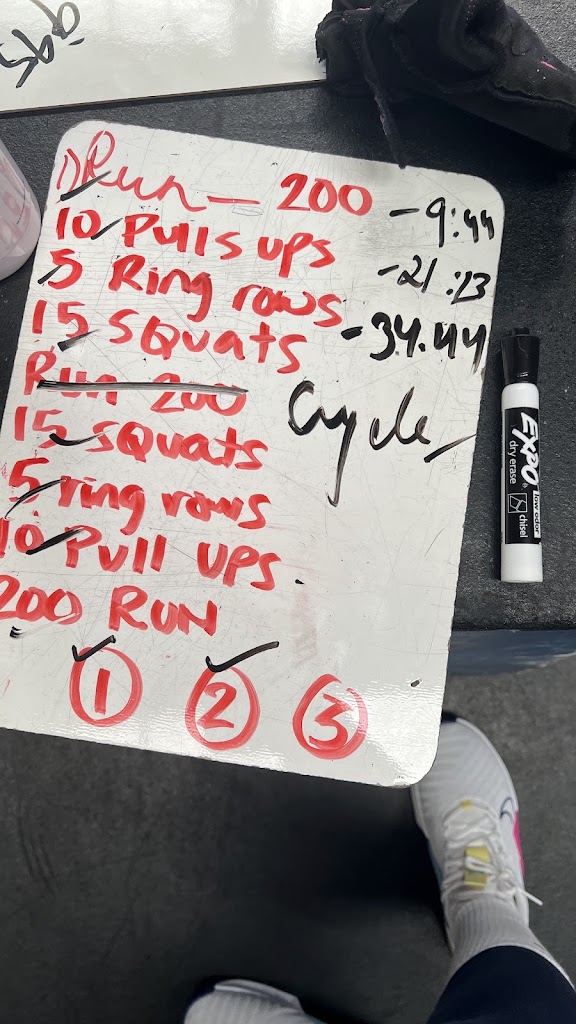 1) Run — 200
- 9:44
10 Pulls ups
- 21:23
5 Ring rows
- 34.44
15 SQuats
Run 200
Cycle
15 SQuats
5 ring rows
10 Pull UPS.
200 RUN
1 2 3
EXPO
low odor
dry erase
chisel